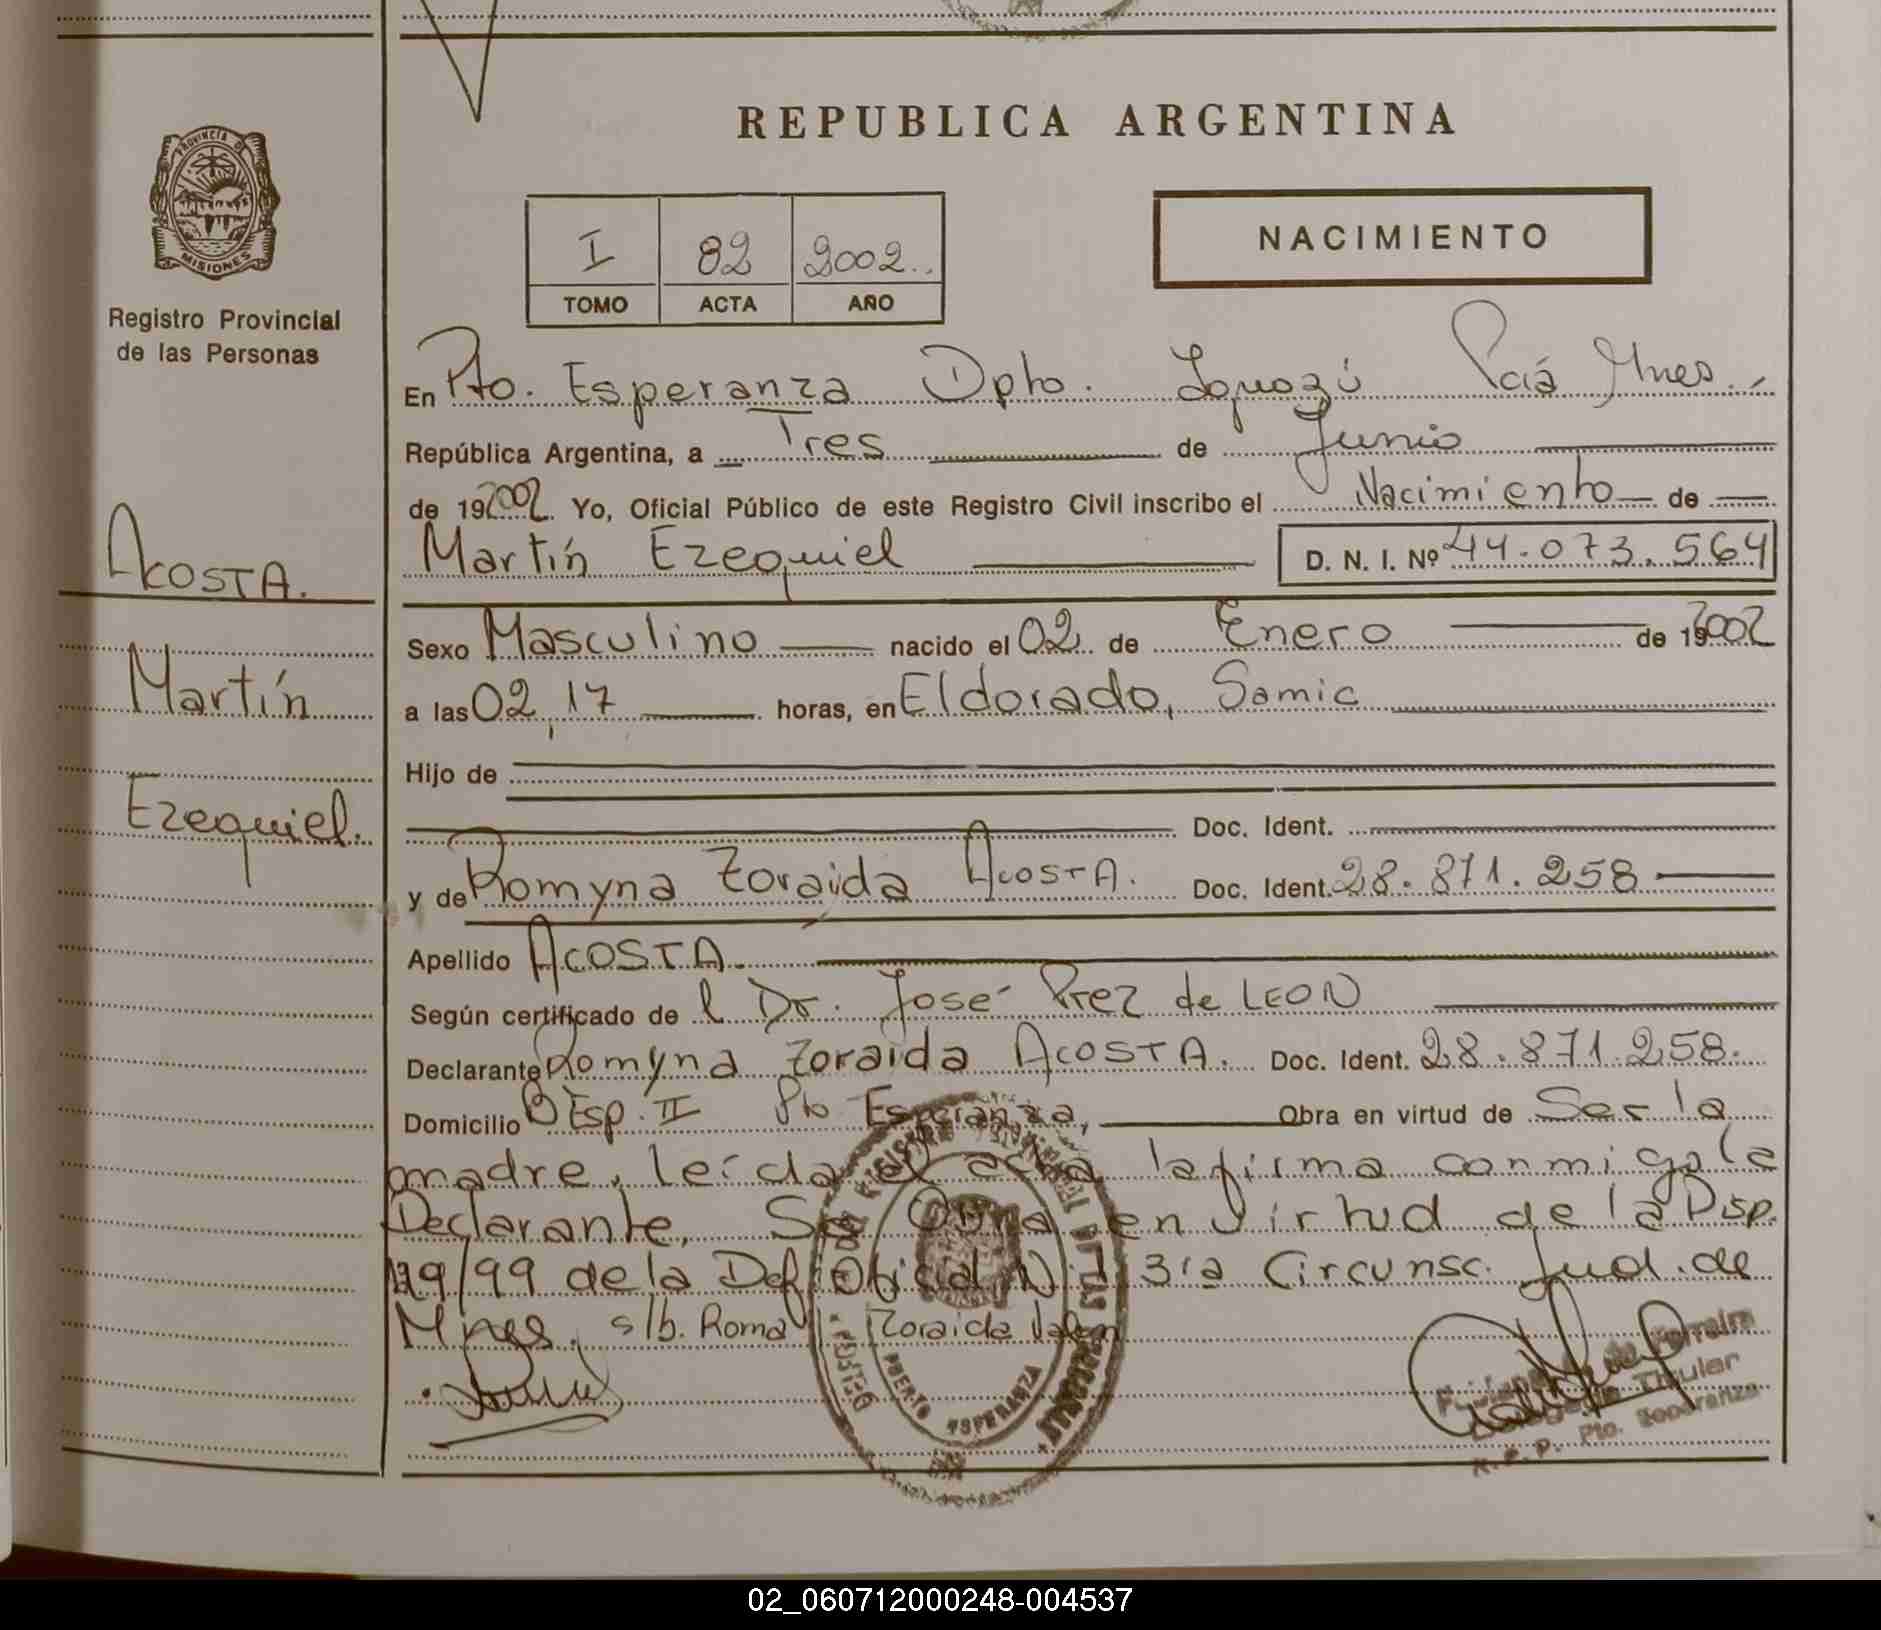 REPUBLICA ARGENTINA
PROVINCIA DE
MISIONES
Registro Provincial
de las Personas
I 82 2002
TOMO ACTA AÑO
NACIMIENTO
En Pto. Esperanza Dpto. Iguazú Pcia Mnes.
República Argentina, a Tres de Junio
de 192002. Yo, Oficial Público de este Registro Civil inscribo el Nacimiento de
Martín Ezequiel D. N. I. Nº 44.073.564
ACOSTA.
Martín
Ezequiel.
Sexo Masculino nacido el 02 de Enero de 192002
a las 02,17 horas, en Eldorado, Samic
Hijo de
Doc. Ident.
y de Romyna Zoraida ACOSTA. Doc. Ident. 28.871.258
Apellido ACOSTA.
Según certificado de l Dr. José Prez de LEON
Declarante Romyna Zoraida ACOSTA. Doc. Ident. 28.871.258.
Domicilio Bº Esp. II Pto Esperanza, Obra en virtud de Ser la
madre, leída el acta la firma conmigo la
Declarante, Se Obra en Virtud de la Disp.
19/99 de la Def. Oficial 3ra Circunsc. Jud. de
Mnes. s/b. Zoraida Valen
PUERTO ESPERANZA
Ferreira
Titular
R. P. P. Pto. Esperanza
02_060712000248-004537